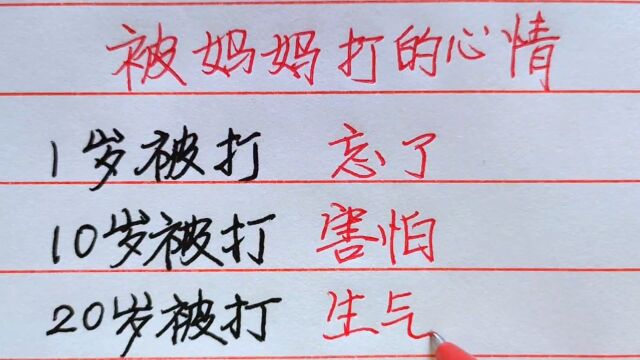 被妈妈打的心情
1岁被打 忘了
10岁被打 害怕
20岁被打 生气